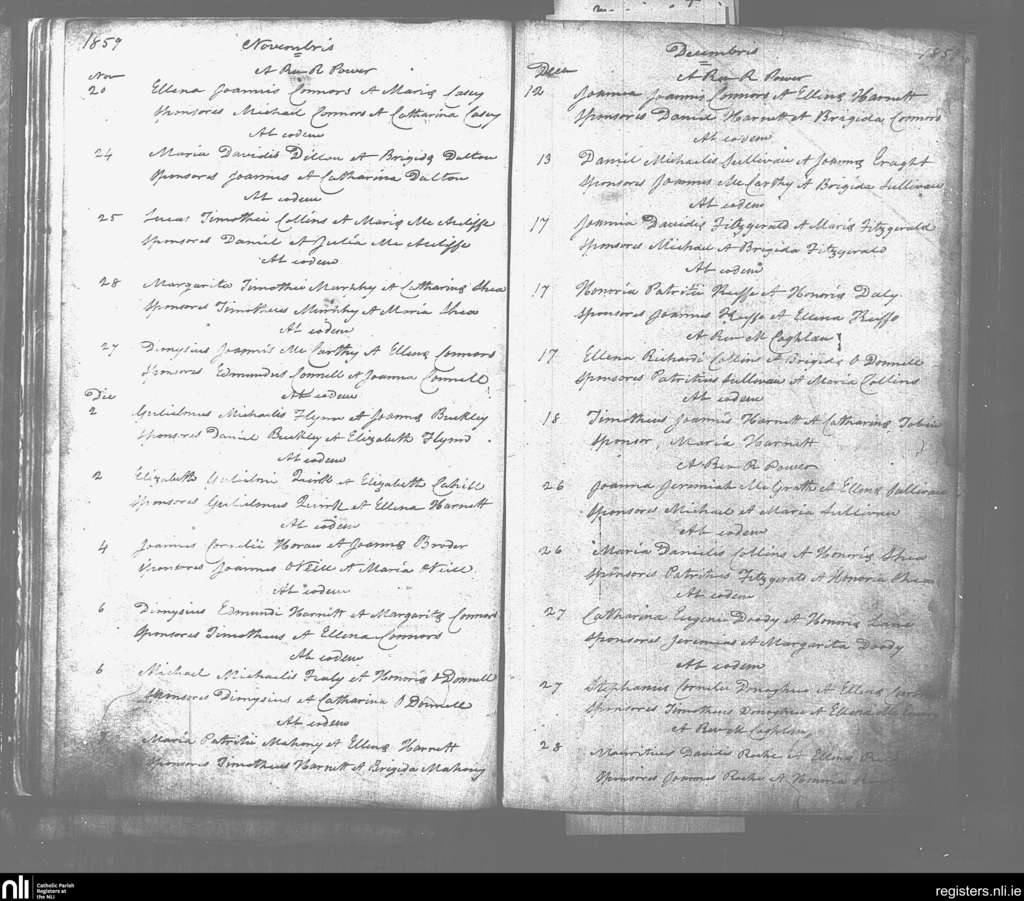 1859
Novembris
A Rev R Power
Nov
20 Ellena Joannis Connors et Mariæ Casey
Sponsores Michael Connors et Catharina Casey
Ab eodem
24 Maria Davidis Dillon et Brigidæ Dalton
Sponsores Joannes et Catharina Dalton
Ab eodem
25 Lucas Timothei Collins et Mariæ Mc Auliffe
Sponsores Daniel et Julia Mc Auliffe
Ab eodem
28 Margarita Timothei Murphy et Catharinæ Shea
Sponsores Timotheus Murphy et Maria Shea
Ab eodem
27 Dionysius Joannis Mc Carthy et Ellenæ Connors
Sponsores Edmundus Connell et Joanna Connell
Ab eodem
Dec
2 Gulielmus Michaelis Flynn et Joannæ Buckley
Sponsores Daniel Buckley et Elizabeth Flynn
Ab eodem
2 Elizabeth Gulielmi Quirk et Elizabeth Cahill
Sponsores Gulielmus Quirk et Ellena Harnett
Ab eodem
4 Joannes Cornelii Horan et Joannæ Broder
Sponsores Joannes O'Neill et Maria Neill
Ab eodem
6 Dionysius Edmundi Harnett et Margaritæ Connors
Sponsores Timotheus et Ellena Connors
Ab eodem
6 Michael Michaelis Fealy et Honoriæ O Donnell
Sponsores Dionysius et Catharina O Donnell
Ab eodem
Maria Patritii Mahony et Ellenæ Harnett
Sponsores Timotheus Harnett et Brigida Mahony
1859
Decembris
A Rev R Power
Decem
12 Joanna Joannis Connors et Ellenæ Harnett
Sponsores Daniel Harnett et Brigida Connors
Ab eodem
13 Daniel Michaelis Sullivan et Joannæ Eraght
Sponsores Joannes Mc Carthy et Brigida Sullivan
Ab eodem
17 Joanna Davidis Fitzgerald et Mariæ Fitzgerald
Sponsores Michael et Brigida Fitzgerald
Ab eodem
17 Honoria Patritii Keeffe et Honoriæ Daly
Sponsores Joannes Keeffe et Ellena Keeffe
A Rev M Coghlan
17 Ellena Richardi Collins et Brigidæ O Donnell
Sponsores Patritius Sullivan et Maria Collins
Ab eodem
18 Timotheus Joannis Harnett et Catharinæ Tobin
Sponsor Maria Harnett
A Rev R Power
26 Joanna Jeremiah Mc Grath et Ellenæ Sullivan
Sponsores Michael et Maria Sullivan
Ab eodem
26 Maria Danielis Collins et Honoriæ Shea
Sponsores Patritius Fitzgerald et Honoria Shea
Ab eodem
27 Catharina Eugenii Doody et Honoriæ Lane
Sponsores Jeremias et Margarita Doody
Ab eodem
27 Stephanus Cornelii Donoghue et Ellenæ
Sponsores Timotheus Donoghue et Ellena Mc
A Rev M Coghlan
28 Mauritius Davidis Roche et Ellenæ
Sponsores Joannes Roche et Honoria
nli
Catholic Parish
Registers at
the NLI
registers.nli.ie